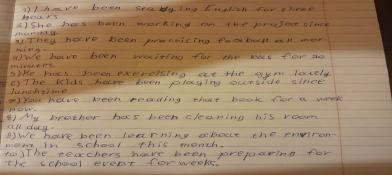 1) I have been studying English for three
hours
2) She has been working on the project since
monday.
3) They have been practicing football all mor
ning.
4) We have been waiting for the bus for 20
minutes
5) He has been exercising at the gym lately
6) The kids have been playing outside since
lunchtime
7) You have been reading that book for a week
now.
8) My brother has been cleaning his room
all day.
9) We have been learning about the environ-
ment in school this month.
10) The teachers have been preparing for
the school event for weeks.